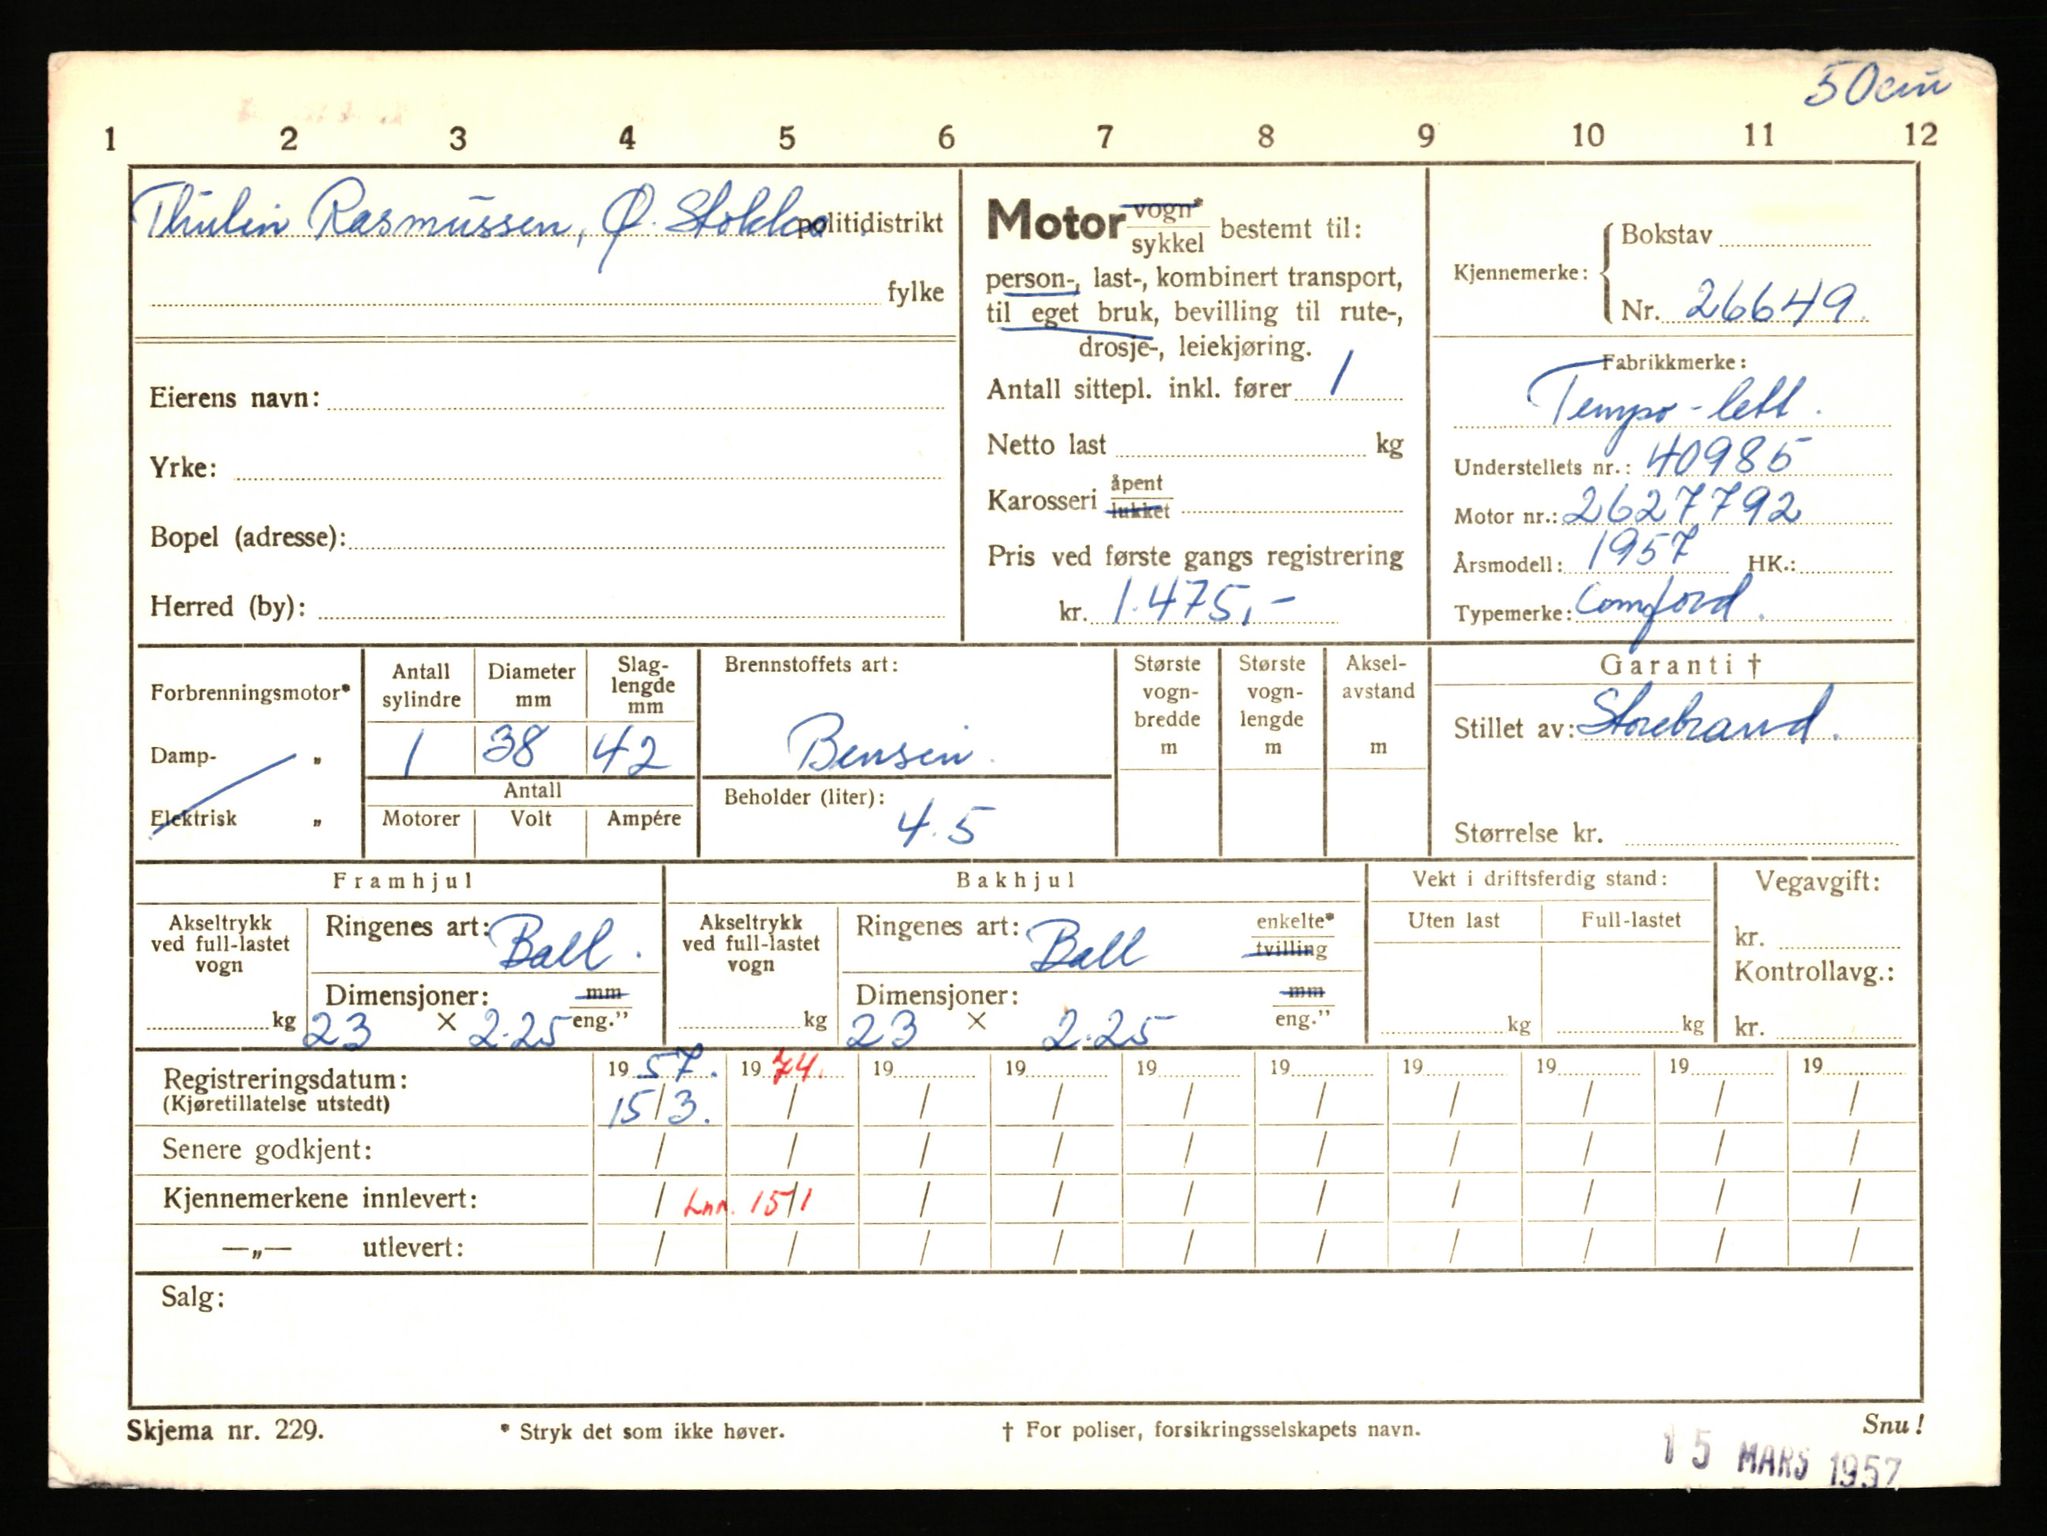 50cm
1 2 3 4 5 6 7 8 9 10 11 12
Thulin Rasmussen, Ø. Stokka politidistrikt
fylke
Eierens navn:
Yrke:
Bopel (adresse):
Herred (by):
Motor vogn* sykkel bestemt til:
person-, last-, kombinert transport,
til eget bruk, bevilling til rute-,
drosje-, leiekjøring.
Antall sittepl. inkl. fører 1
Netto last kg
Karosseri åpent lukket
Pris ved første gangs registrering
kr. 1.475,-
Kjennemerke: Bokstav
Nr. 26649.
Fabrikkmerke:
Tempo-lett.
Understellets nr.: 40985
Motor nr.: 2627792
Årsmodell: 1957 HK.:
Typemerke: Comford.
Forbrenningsmotor*
Damp- „
Elektrisk „
Antall sylindre Diameter mm Slag-lengde mm
1 38 42
Antall
Motorer Volt Ampére
Brennstoffets art:
Bensin.
Beholder (liter):
4.5
Største vogn-bredde m
Største vogn-lengde m
Aksel-avstand m
Garanti †
Stillet av: Storebrand.
Størrelse kr.
Framhjul
Akseltrykk ved full-lastet vogn
kg
Ringenes art: Ball.
Dimensjoner: mm eng."
23 × 2.25
Bakhjul
Akseltrykk ved full-lastet vogn
kg
Ringenes art: Ball enkelte* tvilling
Dimensjoner: mm eng."
23 × 2.25
Vekt i driftsferdig stand:
Uten last Full-lastet
kg kg
Vegavgift:
kr.
Kontrollavg.:
kr.
Registreringsdatum: 19 57. 19 74. 19 19 19 19 19 19 19 19
(Kjøretillatelse utstedt) 15/3. / / / / / / / / /
Senere godkjent: / / / / / / / / / /
Kjennemerkene innlevert: / Inn. 15/1 / / / / / / / /
—„— utlevert: / / / / / / / / / /
Salg:
Skjema nr. 229. * Stryk det som ikke høver. † For poliser, forsikringsselskapets navn. Snu!
15 MARS 1957